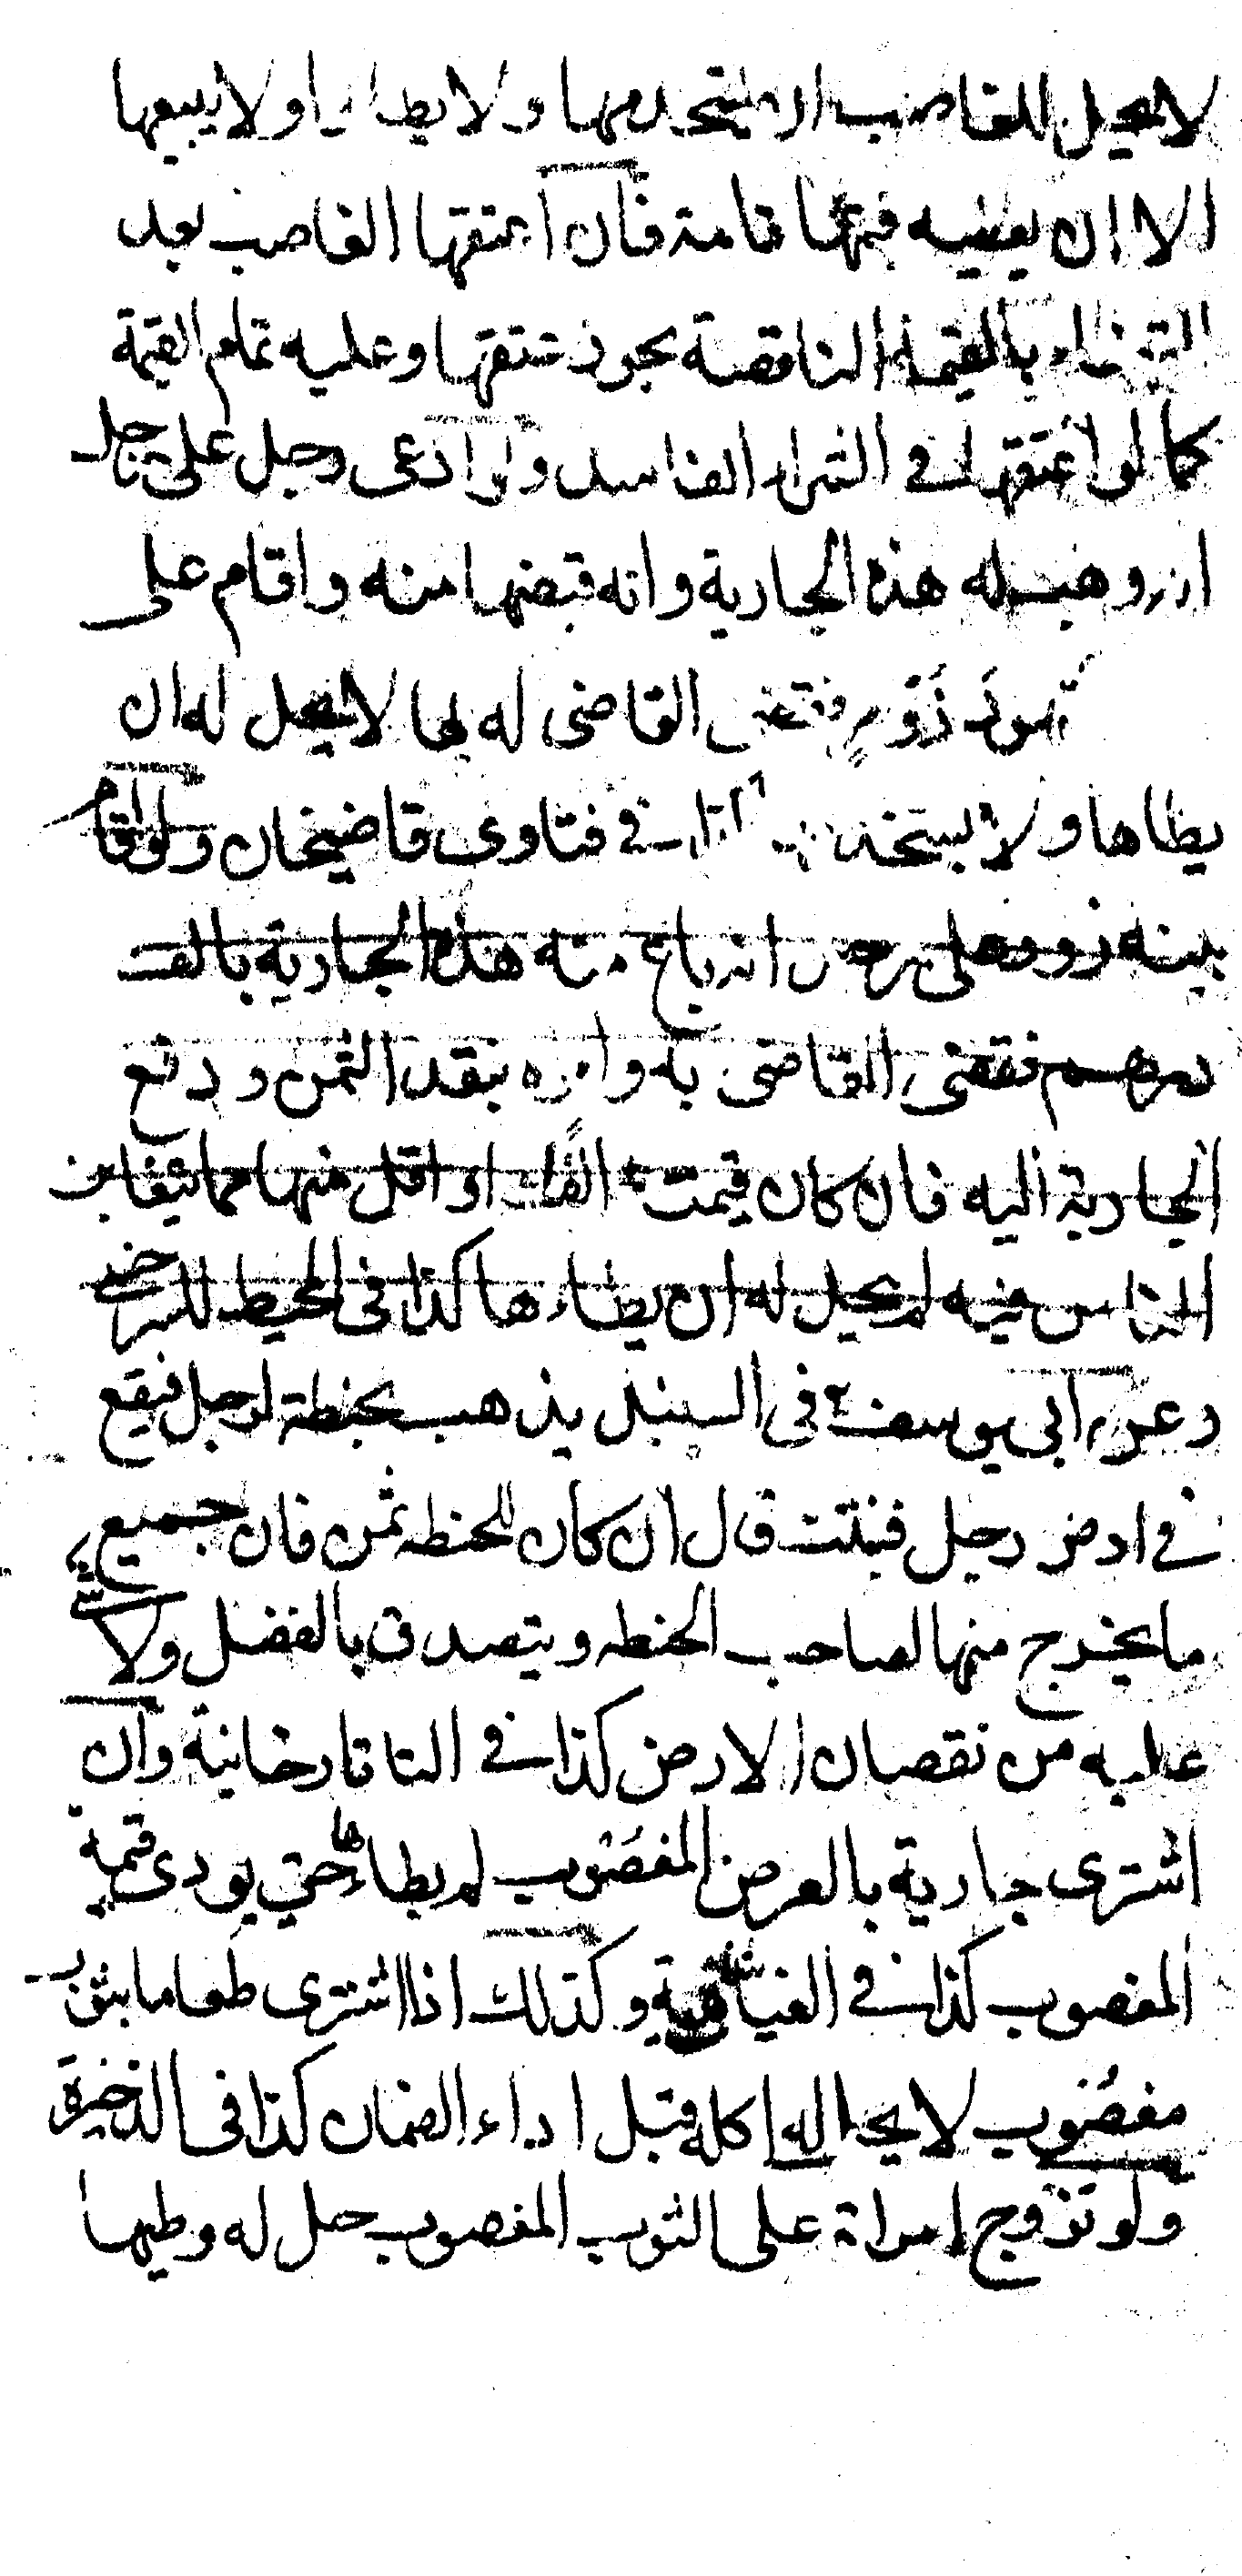 لا يحل للغاصب ان يستخدمها ولا يطاها ولا يبيعها
الا ان يعطيه قيمتها تامة فان اعتقها الغاصب بعد
القضاء بالقيمة الناقصة يجوز عتقها وعليه تمام القيمة
كما لو اعتقها في الشراء الفاسد ولو ادعى رجل على رجل
انه وهب له هذه الجارية وانه قبضها منه واقام على
شهود زور فقضى القاضى له بها لا يحل له ان
يطاها ولا يستخدمها كذا في فتاوى قاضيخان ولو اقام
بينه زور على رجل انه باع منه هذه الجارية بالف
درهم فقضى القاضى به وامره بنقد الثمن ودفع
الجارية اليه فان كان قيمتها الفا او اقل منها مما يتغابن
الناس فيه لم يحل له ان يطاءها كذا فى المحيط للسرخسى
وعن ابى يوسف فى السنبل يذهب بحنطة لرجل فيقع
في ارض رجل فنبتت قال ان كان للحنطه ثمن فان جميع
ما يخرج منها لصاحب الحنطه ويتصدق بالفضل ولا شئ
عليه من نقصان الارض كذا في التاتارخانية وان
اشترى جارية بالعرض المغصوب لم يطاءها حتي يودى قيمة
المغصوب كذا في الغياثية وكذلك اذا اشترى طعاما بثوب
مغصوب لا يحل له اكله قبل اداء الضمان كذا فى الذخيرة
ولو تزوج امراة على الثوب المغصوب حل له وطيها